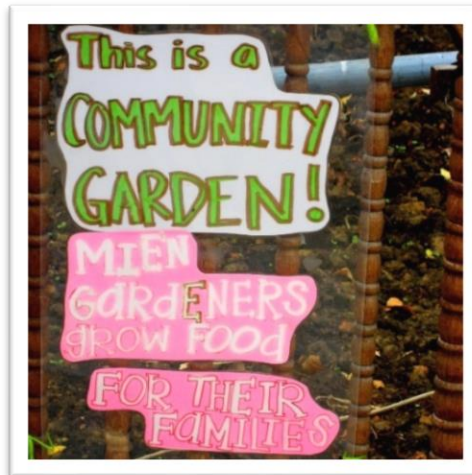 This is a
COMMUNITY
GARDEN!
MIEN
GardENERS
grow Food
FOR THEIR
FaMILIES